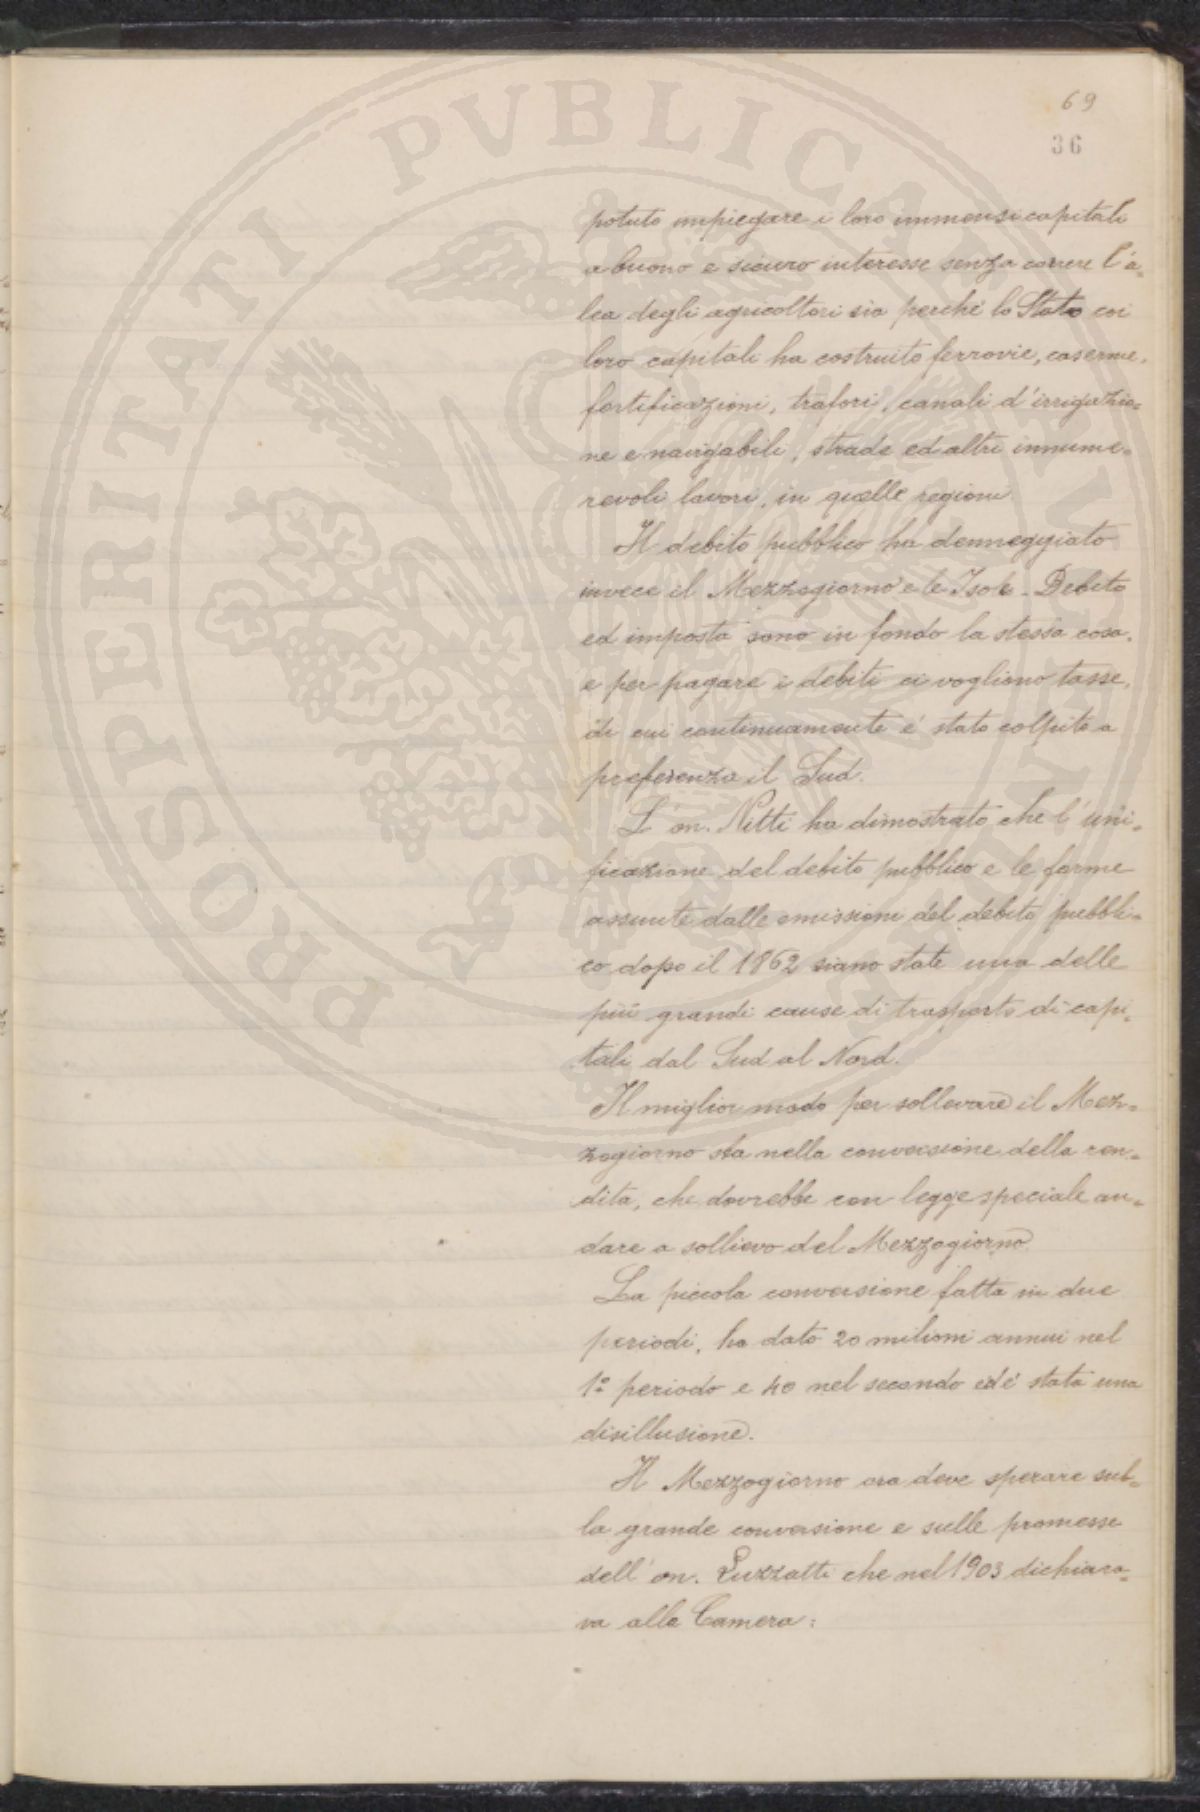 69
36
potuto impiegare i loro immensi capitali
a buono e sicuro interesse senza correre l'a-
lea degli agricoltori sia perché lo Stato coi
loro capitali ha costruito ferrovie, caserme,
fortificazioni, trafori, canali d'irrigazio-
ne e navigabili, strade ed altri innume-
revoli lavori, in quelle regioni.
Il debito pubblico ha danneggiato
invece il Mezzogiorno e le Isole - Debito
ed imposta sono in fondo la stessa cosa,
e per pagare i debiti ci vogliono tasse,
di cui continuamente é stato colpito a
preferenza il Sud.
L'on. Nitti ha dimostrato che l'uni-
ficazione del debito pubblico e le forme
assunte dalle emissioni del debito pubbli-
co dopo il 1862 siano state una delle
più grandi cause di trasporto di capi-
tali dal Sud al Nord.
Il miglior modo per sollevare il Mez-
zogiorno sta nella conversione della ren-
dita, che dovrebbe con legge speciale an-
dare a sollievo del Mezzogiorno.
La piccola conversione fatta in due
periodi, ha dato 20 milioni annui nel
1º periodo e 40 nel secondo ed é stata una
disillusione.
Il Mezzogiorno ora deve sperare sul-
la grande conversione e sulle promesse
dell'on. Luzzatti che nel 1903 dichiara-
va alla Camera:
PROSPERITATI PVBLICAE